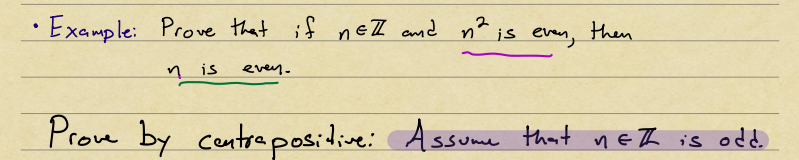 • Example: Prove that if n∈ℤ and n² is even, then
n is even.
Prove by contrapositive: Assume that n∈ℤ is odd.